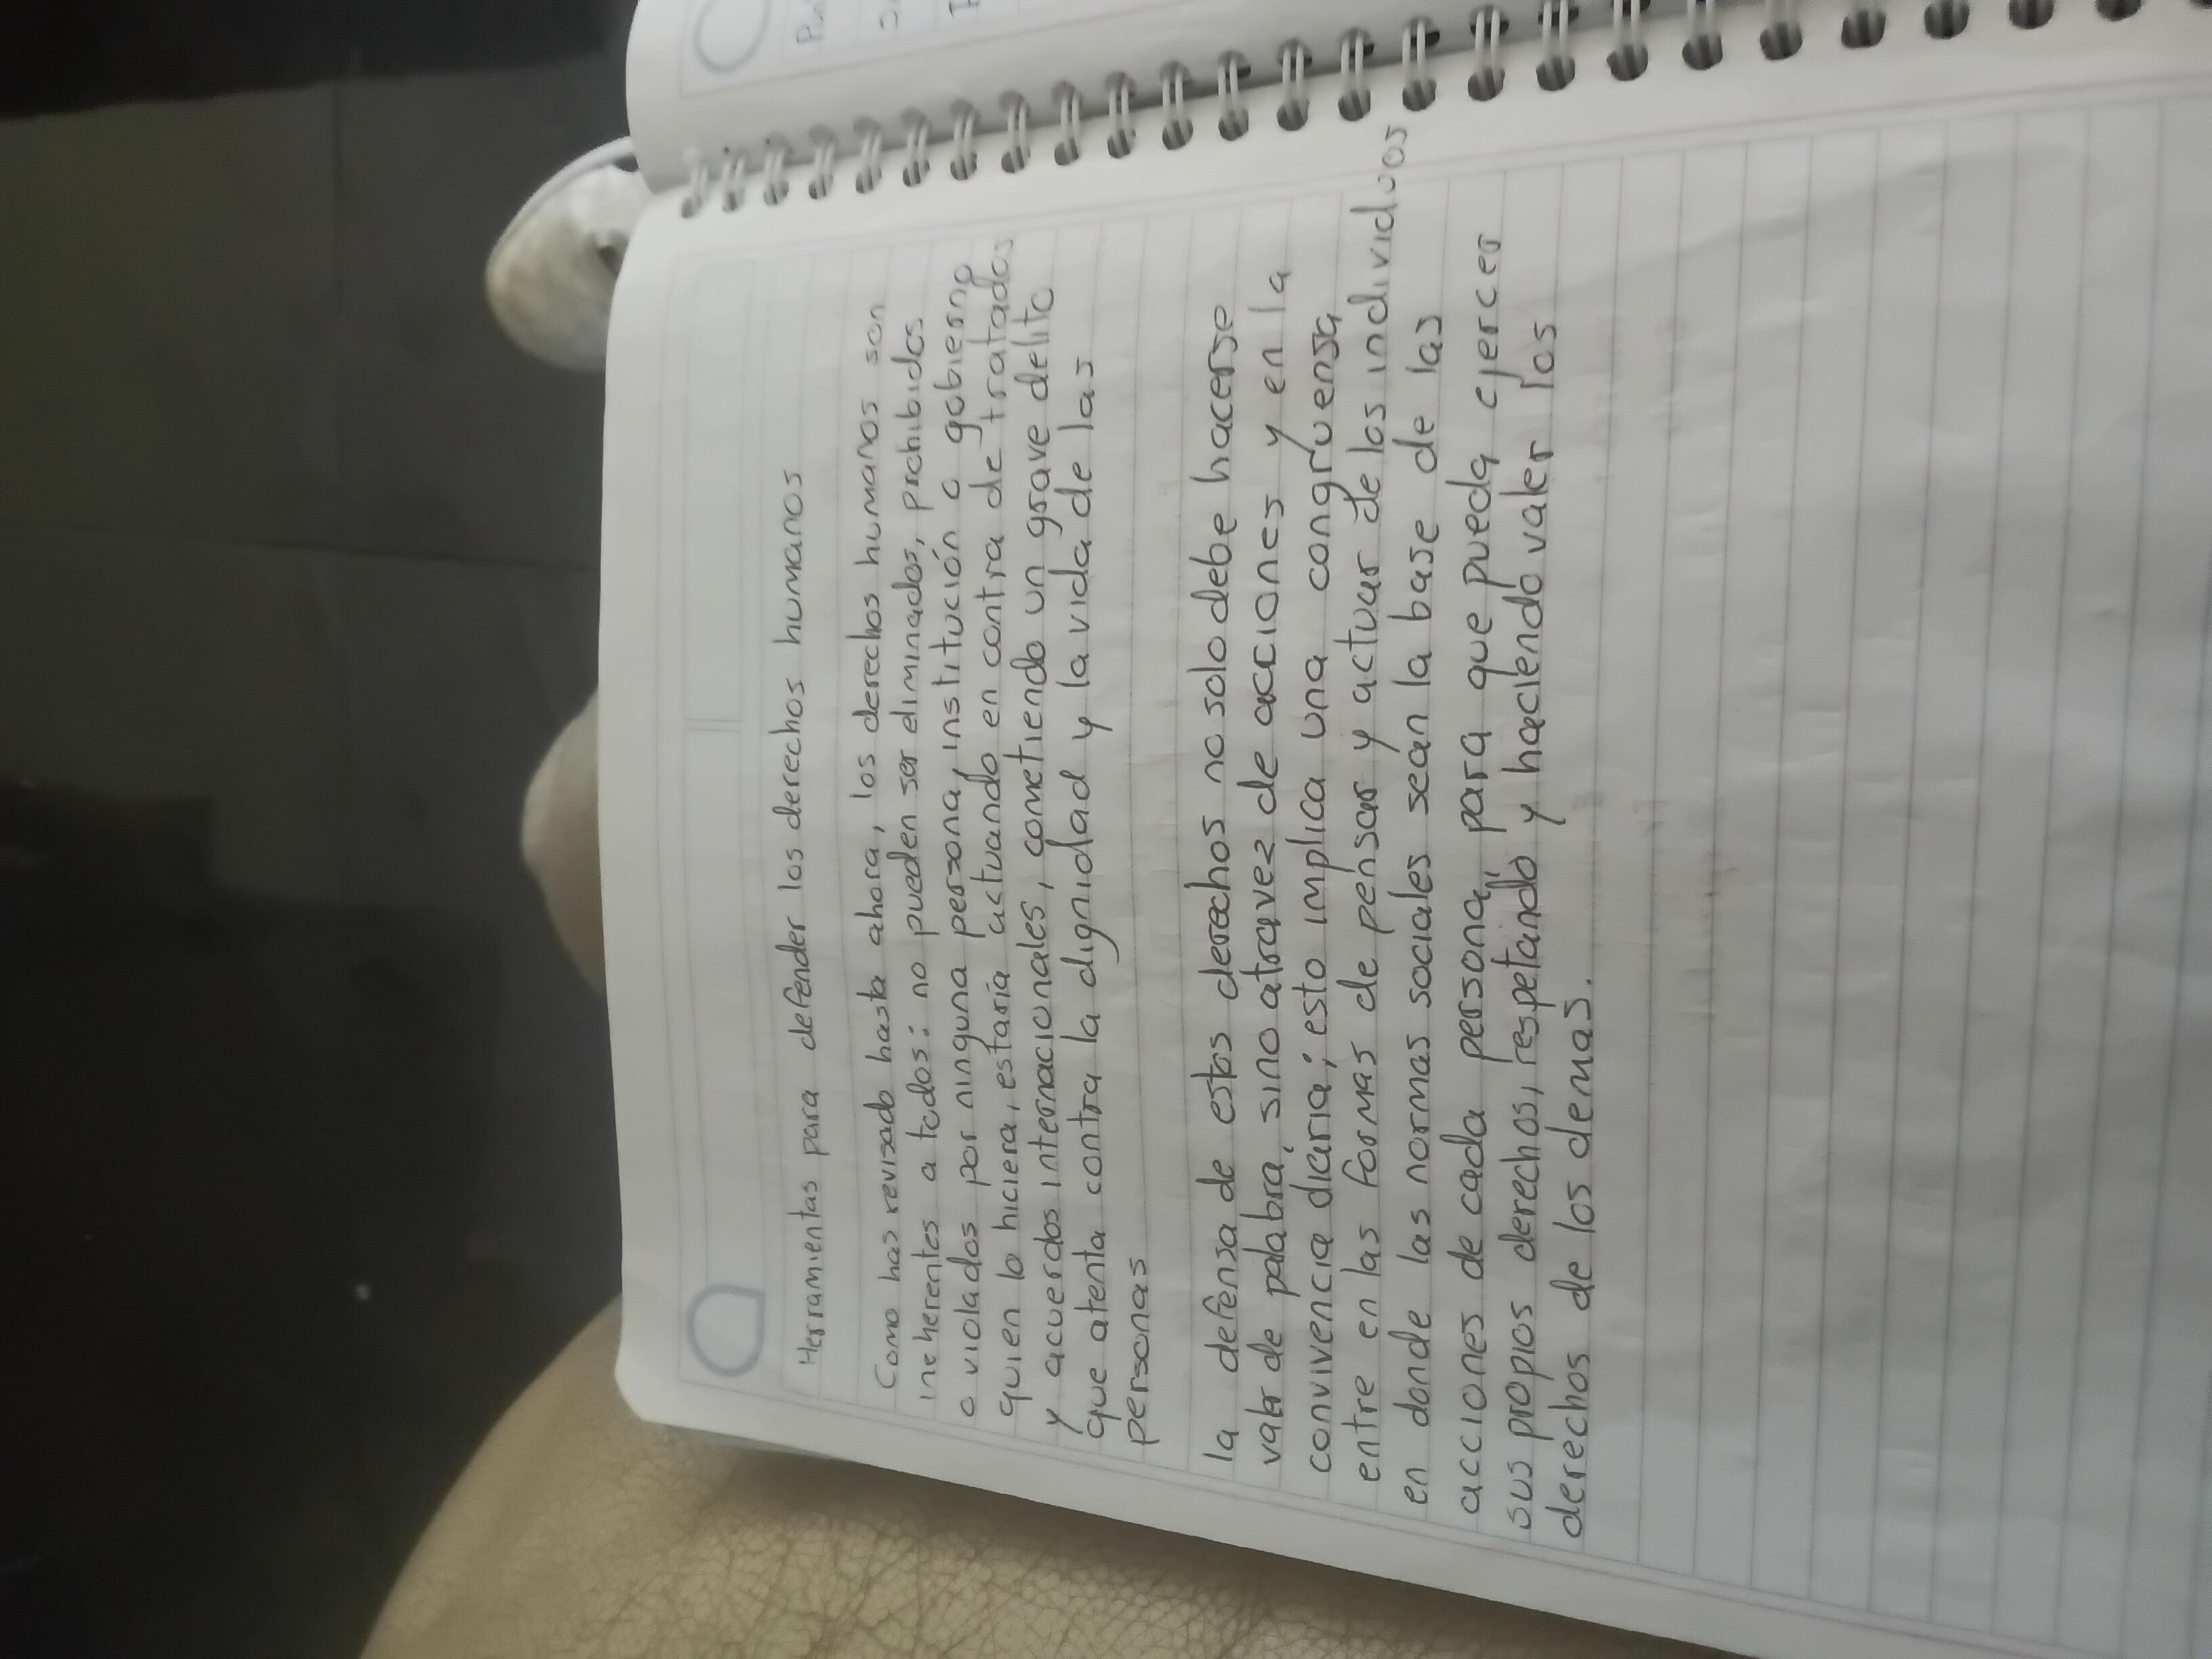 Herramientas para defender los derechos humanos
Como has revisado hasta ahora, los derechos humanos son
inherentes a todos: no pueden ser eliminados, prohibidos
o violados por ninguna persona, institución o gobierno
quien lo hiciera, estaría actuando en contra de tratados
y acuerdos internacionales, cometiendo un grave delito
que atenta contra la dignidad y la vida de las
personas
la defensa de estos derechos no solo debe hacerse
valer de palabra, sino atravez de acciones y en la
convivencia diaria; esto implica una congruensa
entre en las formas de pensar y actuar de los individuos
en donde las normas sociales sean la base de las
acciones de cada persona, para que pueda ejercer
sus propios derechos, respetando y haciendo valer los
derechos de los demas.